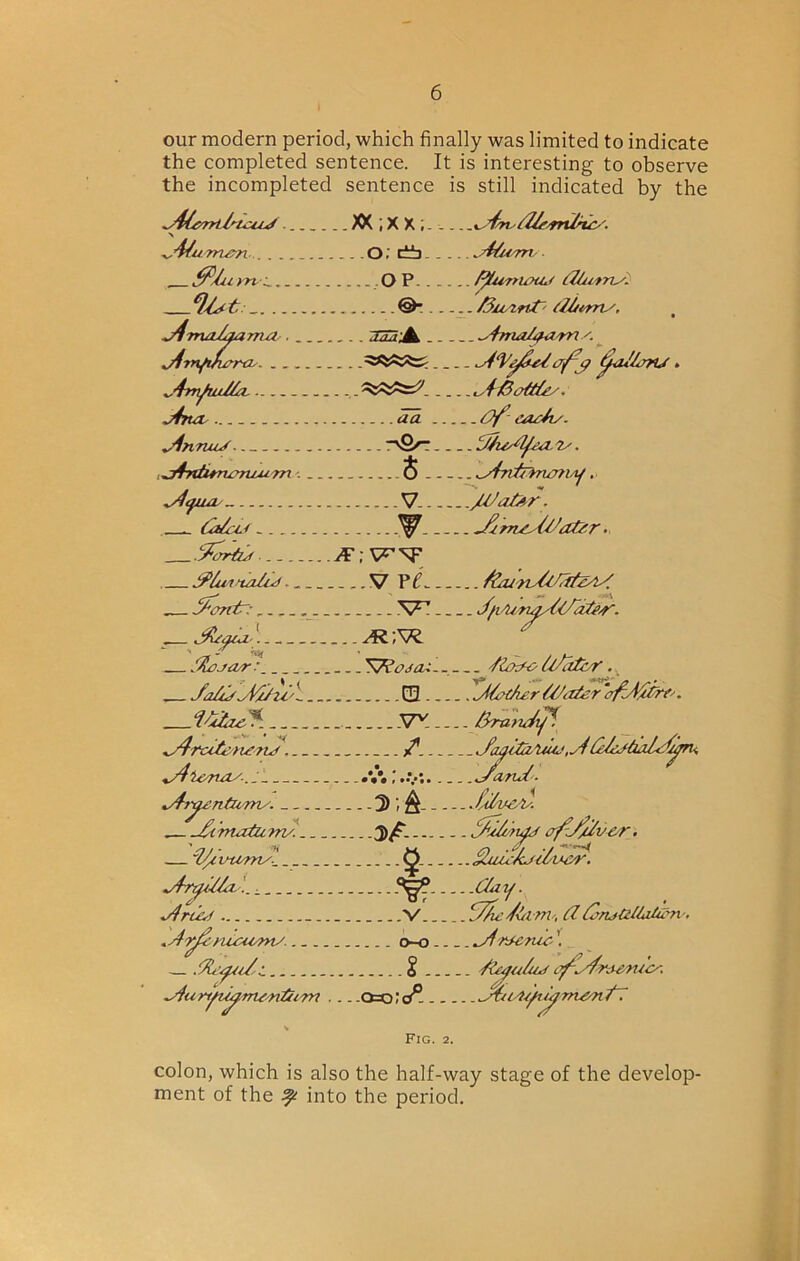 6
our modern period, which finally was limited to indicate
the completed sentence. It is interesting to observe
the incompleted sentence is still indicated by the
Alembicus XX ; X X ; An Alembic.
Alumen O ; Alum.
— Plum. O P Plumous Alum.
— Ust. Burnt Alum.
Amalgama aaa ; Amalgam.
Amphora A Vessel of 9 Gallons.
Ampulla A Bottle.
Ana āā Of each.
Annus The Year.
Antimonium ♁ Antimony.
Aqua ▽ Water.
— Calcis Lime Water.
— Fortis Æ ; ▽F
— Pluvialis ▽ Pl Rain Water.
— Font. Spring Water.
— Regia ÆR ; ▽R
— Rosar. ▽Rosa: Rose Water.
— Salis Nitri Mother Water of Nitre.
— Vitae ▽V Brandy.
Sagitarius, A Celestial Sign.
Arena Sand.
Argentum ☽ ; Silver.
— Limatum Filings of Silver.
— Vivum ☿ Quicksilver.
Argilla Clay.
Aries V The Ram, A Constellation.
Arsenicum o–o Arsenic.
— Regul. Regulus of Arsenic.
Auripigmentum Auripigment.
FIG. 2.
colon, which is also the half-way stage of the develop-
ment of the into the period.